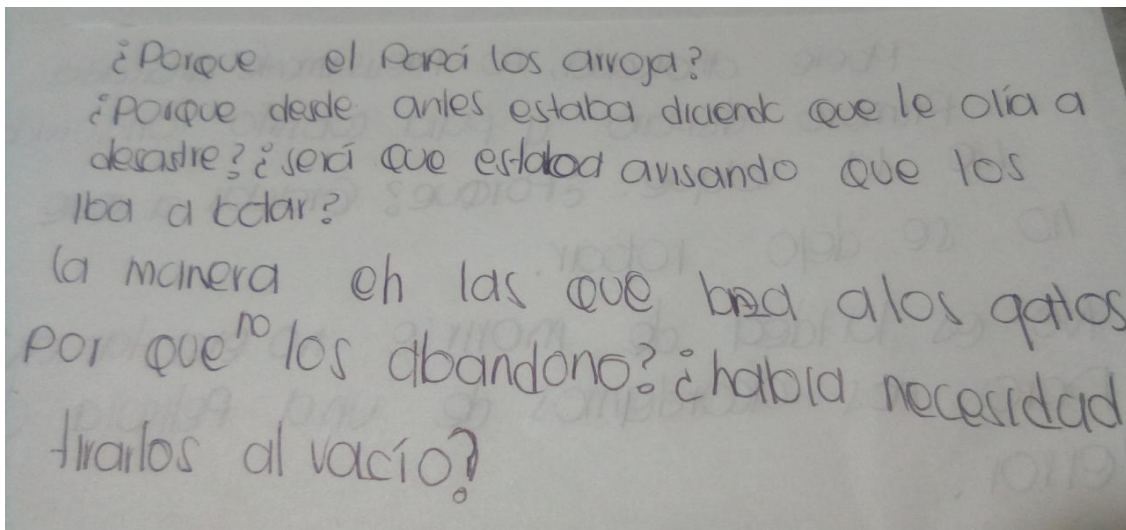 ¿Porque el Papá los arroja?
¿porque desde antes estaba diciendo que le olía a
desastre? ¿será que estaba avisando que los
Iba a botar?
la manera en las que bota alos gatos
por que no los abandono? ¿había necesidad
tirarlos al vacío?